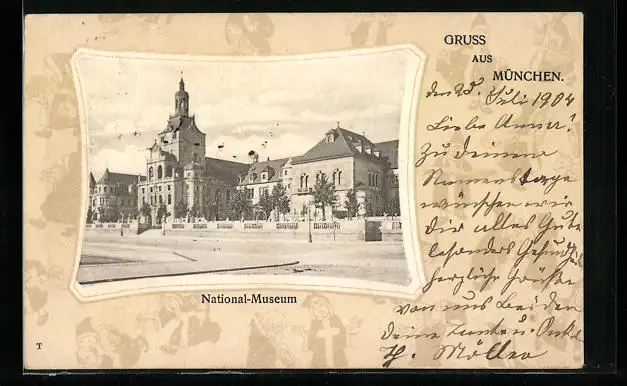 GRUSS
AUS
MÜNCHEN.
den 25. Juli 1904
Liebe Anna!
Zu deinem
Namenstage
wünschen wir
Dir alles Gute
besonders Gesundheit
herzliche Grüße
von uns beiden
deine Tante u. Onkel
H. Möller
National-Museum
T